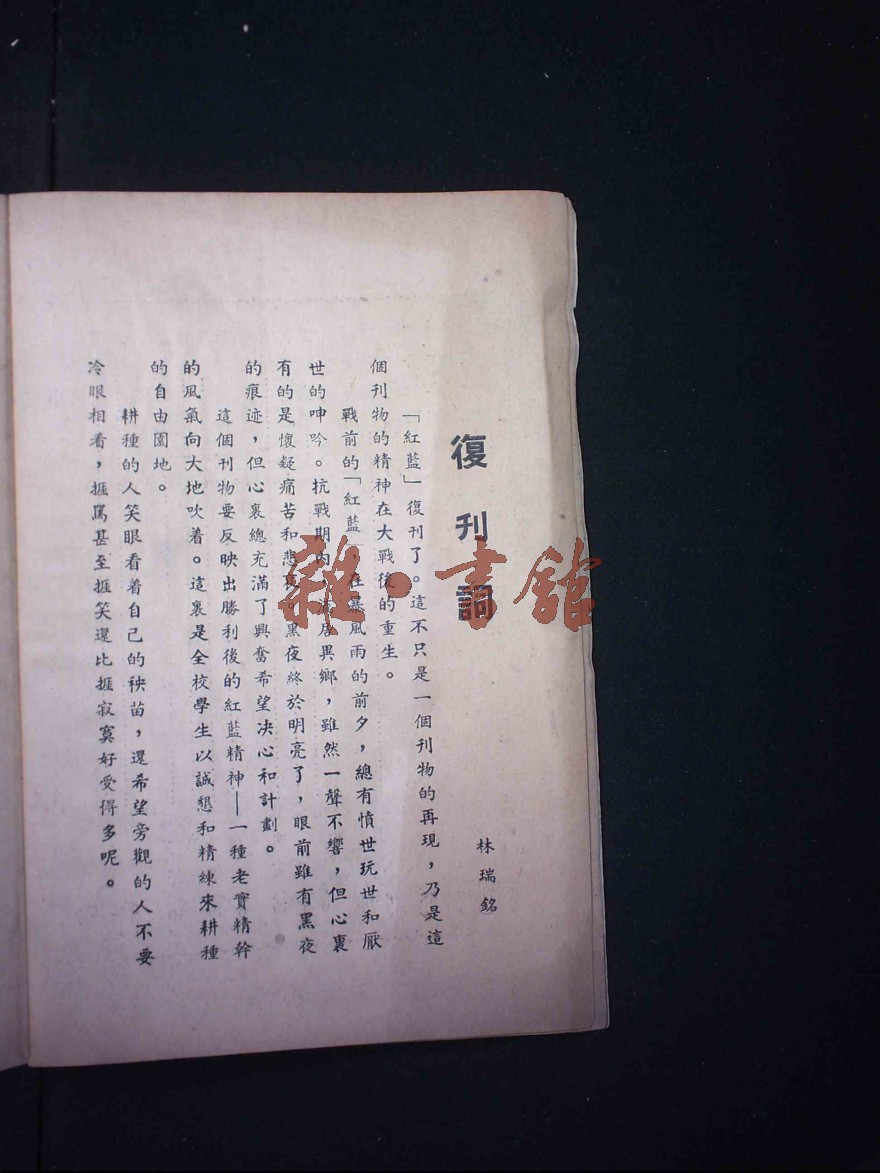 復刊詞
林瑞銘
「紅藍」復刊了。這不只是一個刊物的再現，乃是這
個刊物的精神在大戰後的重生。
戰前的「紅藍」，在暴風雨的前夕，總有憤世玩世和厭
世的呻吟。抗戰期內，居異鄉，雖然一聲不響，但心裏
有的是懷疑痛苦和悲哀。黑夜終於明亮了，眼前雖有黑夜
的痕迹，但心裏總充滿了興奮希望决心和計劃。
這個刊物要反映出勝利後的紅藍精神—一種老實精幹
的風氣向大地吹着。這裏是全校學生以誠懇和精練來耕種
的自由園地。
耕種的人笑眼看着自己的秧苗，還希望旁觀的人不要
冷眼相看，捱罵甚至捱笑還比捱寂寞好受得多呢。
雜·書館